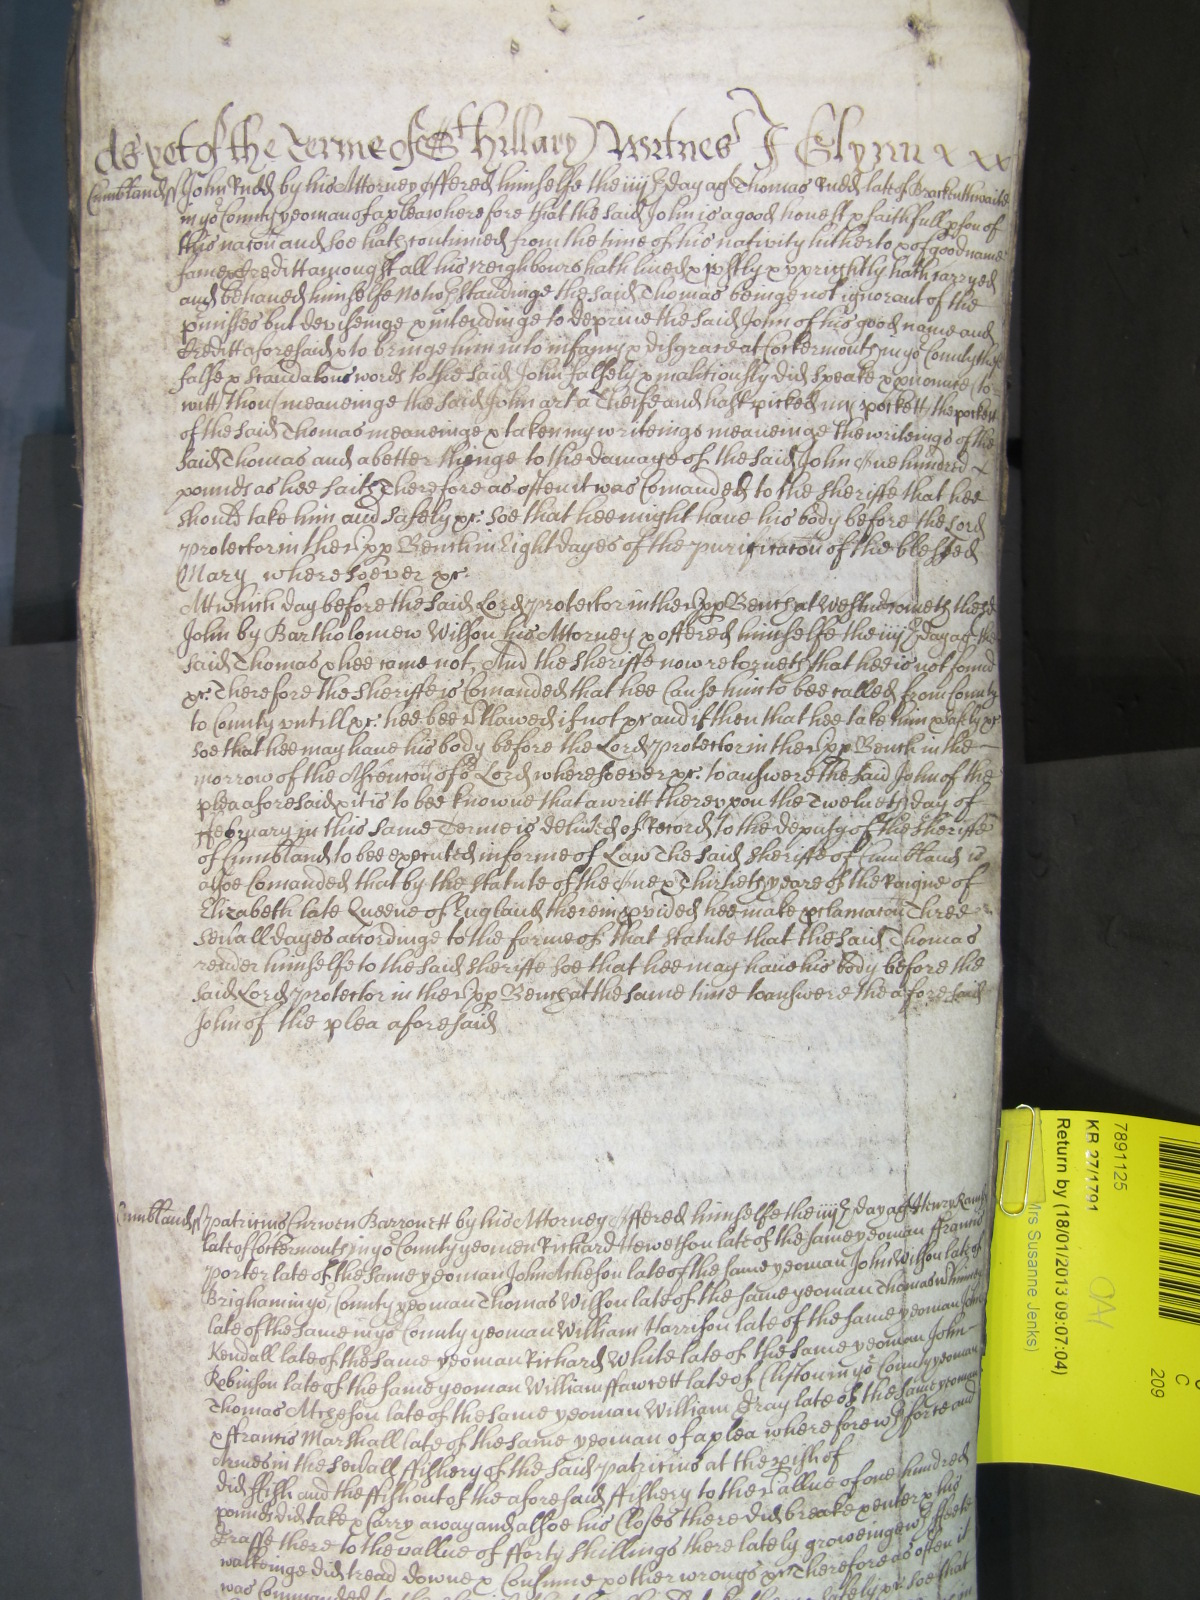 As yet of the Terme of St Hillary Witnes J Glynn x x x
Cumbland ss John Rudd by his Attorney offered himselfe the iiijth day agt Thomas Rudd late of Brackenthwaite
in yor County yeoman of a plea wherefore that the said John is a good honest & faithfull pson of
this nacon and soe hath continued from the time of his nativity hitherto & of good name
fame & Creditt amongst all his neighbours hath lived & justly & uprightly hath carryed
and behaved himselfe Notwthstandinge the said Thomas beinge not ignorant of the
pmisses but deviseinge & intendinge to deprive the said John of his good name and
Creditt aforesaid & to bringe him into infamy & disgrace at Cockermouth in yor County these
false & scandalous words to the said John falsely & malitiously did speake & pnounce (to
witt) thou (meaneinge the said John) art a Theife and hast picked my pockett (the pockett
of the said Thomas meaneinge) & taken my writeings meaneinge the writeings of the
said Thomas and a better thinge to the damage of the said John One hundred
pounds as hee saith Therefore as often it was Comanded to the Sheriffe that hee
should take him and safely &c. soe that hee might have his body before the Lord
Protector in the Upp Bench in Eight dayes of the purificacon of the blessed
Mary wheresoever &c.
At which day before the said Lord Protector in the Upp Bench at Westm cometh the sd
John by Bartholomew Wilson his Attorney & offered himselfe the iiijth day agt the
said Thomas & hee came not, And the Sheriffe now retorneth that hee is not found
&c. Therefore the Sheriffe is Comanded that hee Cause him to bee called from County
to County untill &c. hee bee Utlawed if not &c and if then that hee take him & safely &c
soe that hee may have his body before the Lord Protector in the Upp Bench in the
morrow of the Ascencon of or Lord wheresoever &c. to answere the said John of the
plea aforesaid & it is to bee knowne that a writt thereupon the Twelveth day of
ffebruary in this same Terme is delived of Record to the deputy of the Sheriffe
of Cumbland to bee executed in forme of Law The said Sheriffe of Cumbland is
alsoe Comanded that by the statute of the One & Thirtieth yeare of the Raigne of
Elizabeth late Queene of England therein pvided hee make pclamacon Three
sevall dayes accordinge to the forme of that statute that the said Thomas
render himselfe to the said Sheriffe soe that hee may have his body before the
said Lord Protector in the Upp Bench at the same time to answere the aforesaid
John of the plea aforesaid
Cumbland ss Patricius Curwen Barronett by his Attorney Offered himselfe the iiijth day agt Henry
late of Cockermouth in yor County yeomen Richard Hewetson late of the same yeoman ffrancis
Porter late of the same yeoman John Atcheson late of the same yeoman John Wilson late of
Brigham in yor County yeoman Thomas Wilson late of the same yeoman Thomas
late of the same in yor County yeoman William Harrison late of the same yeoman John
Kendall late of the same yeoman Richard White late of the same yeoman John
Robinson late of the same yeoman William ffawcett late of Clifton in yor County yeoman
Thomas Atcheson late of the same yeoman William Gray late of the same yeoman
& ffrancis Marshall late of the same yeoman of a plea wherefore wth force and
Armes in the sevall ffishery of the said Patricius at the pish of
did ffish and the ffish out of the aforesaid ffishery to the vallue of one hundred
pounds did take & Carry away and alsoe his Closes there did breake & enter & his
Grasse there to the vallue of fforty shillings there lately groweinge wth ffeete
walkeinge did tread downe & Consume & other wrongs &c. Therefore as often it
was Commanded to the
7891125
KB 27/1791
Return by (18/01/2013 09:07:04)
Mrs Susanne Jenks)
C
209